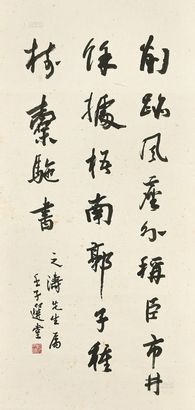 削跡風塵外稱臣市井
餘據梧南郭子種
樹橐駝書
之濤先生屬
壬子選堂